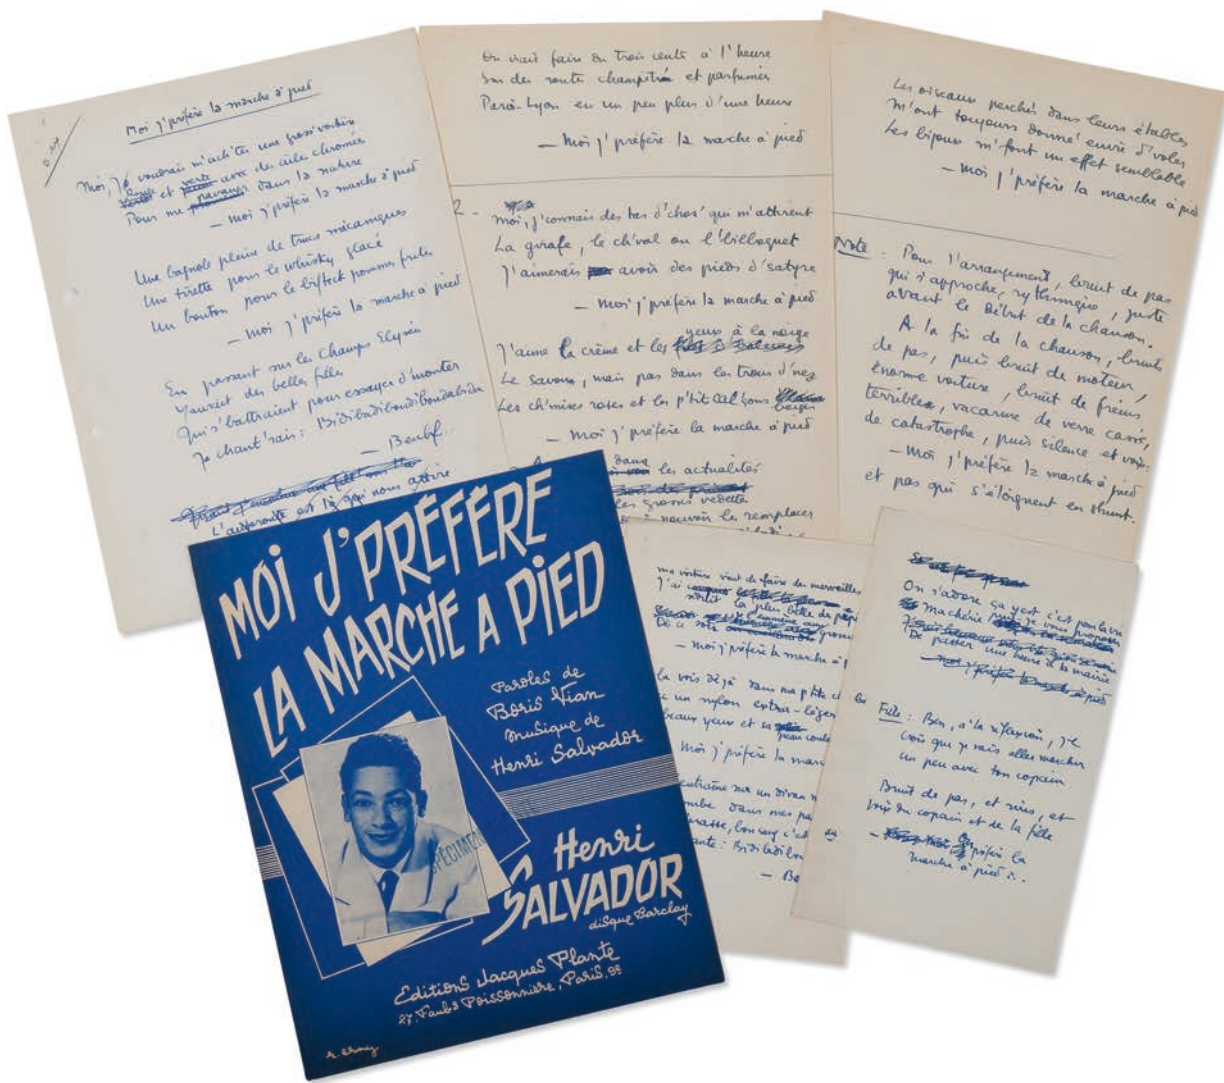 Moi j'préfère la marche à pied
Moi, j'voudrais m'ach'ter une grosse voiture
rouge et verte avec des ailes chromées
Pour me pavaner dans la nature
— Moi j'préfère la marche à pied
Une bagnole pleine de trucs mécaniques
Une tirette pour le whisky glacé
Un bouton pour le bifteck pommes frites
— Moi j'préfère la marche à pied
En passant sur les Champs Elysées
Y'aurait des belles filles
Qui s'battraient pour essayer d'monter
Je chant'rais : Bidibadiboudiboudabida
— Benbf..
L'autoroute est là qui nous attire
On vait faire du trois cents à l'heure
Sur des routes champêtres et parfumées
Paris-Lyon en un peu plus d'une heure
— Moi j'préfère la marche à pied
2 -
Moi, j'connais des tas d'chos' qui m'attirent
La girafe, le ch'val ou l'bilboquet
J'aimerais avoir des pieds d'satyre
— Moi j'préfère la marche à pied
yeux à la neige
J'aime la crème et les
Le savon, mais pas dans les trous d'nez
Les ch'mises roses et les p'tits cal'çons
beiges
— Moi j'préfère la marche à pied
dans les actualités
les grosses vedettes
pouvoir les remplacer
Les oiseaux perchés dans leurs étables
M'ont toujours donné envie d'voler
Les bijoux m'font un effet semblable
— Moi j'préfère la marche à pied
Note : Pour l'arrangement, bruit de pas
qui s'approche, rythmique, juste
avant le début de la chanson.
A la fin de la chanson, bruits
de pas, puis bruit de moteur,
énorme voiture, bruit de freins
terribles, vacarme de verre cassé,
de catastrophe, puis silence et voix :
— Moi j'préfère la marche à pied
et pas qui s'éloignent en shunt.
MOI J'PRÉFÈRE
LA MARCHE A PIED
Paroles de
Boris Vian
Musique de
Henri Salvador
SPÉCIMEN
Henri
SALVADOR
disque Barclay
Editions Jacques Plante
27, Faubg Poissonnière, Paris, 9e
ma voiture vient de faire des merveilles
J'ai
la plus belle de
De ce
— Moi j'préfère la marche à p
la vois déjà dans ma p'tite
un nylon extra-léger
beaux yeux et sa
peau
Moi j'préfère la marc
entraîne sur un divan
tombe dans mes
: Bidibadibou
— Be
On s'adore ça y est c'est pour la vie
Ma chérie je vous propose
De passer une heure à la mairie
Fille : Ben, à la réflexion, j'
crois que je vais aller marcher
un peu avec ton copain
Bruit de pas, et rires, et
voix du copain et de la fille
— On préfère la
marche à pied..